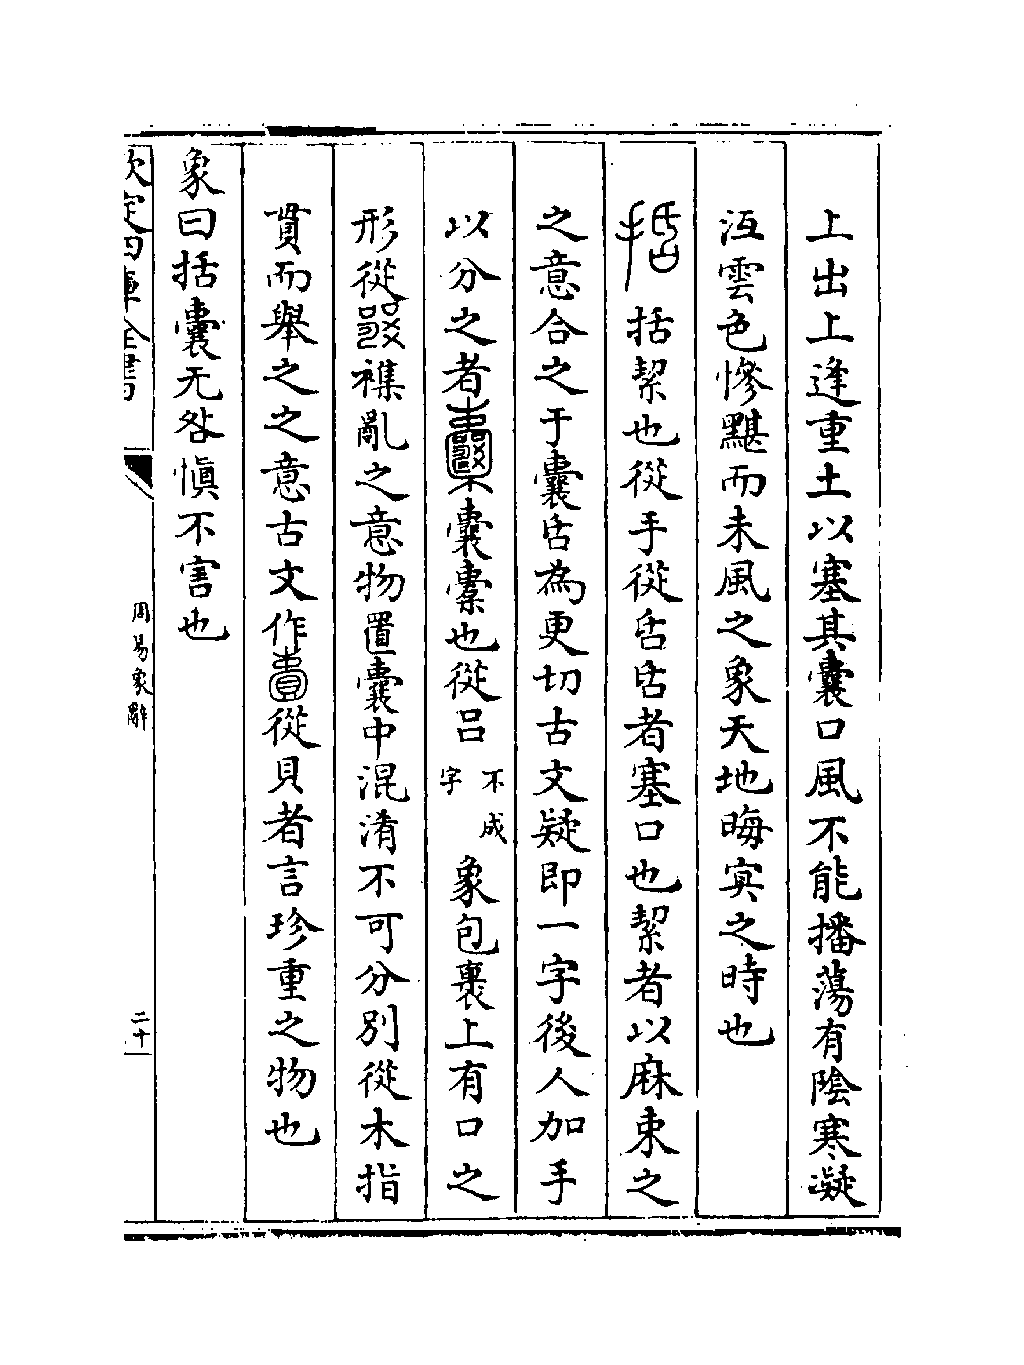 上出上逢重土以塞其囊口風不能播蕩有陰寒凝
沍雲色慘黮而未風之象天地晦冥之時也
括絜也從手從𠯑𠯑者塞口也絜者以麻束之
之意合之于囊𠯑為更切古文疑即一字後人加手
以分之者囊橐也從吕不成字象包裹上有口之
形從襍亂之意物置囊中混淆不可分別從木指
貫而舉之之意古文作從貝者言珍重之物也
象曰括囊无咎慎不害也
欽定四庫全書
周易象辭
二十